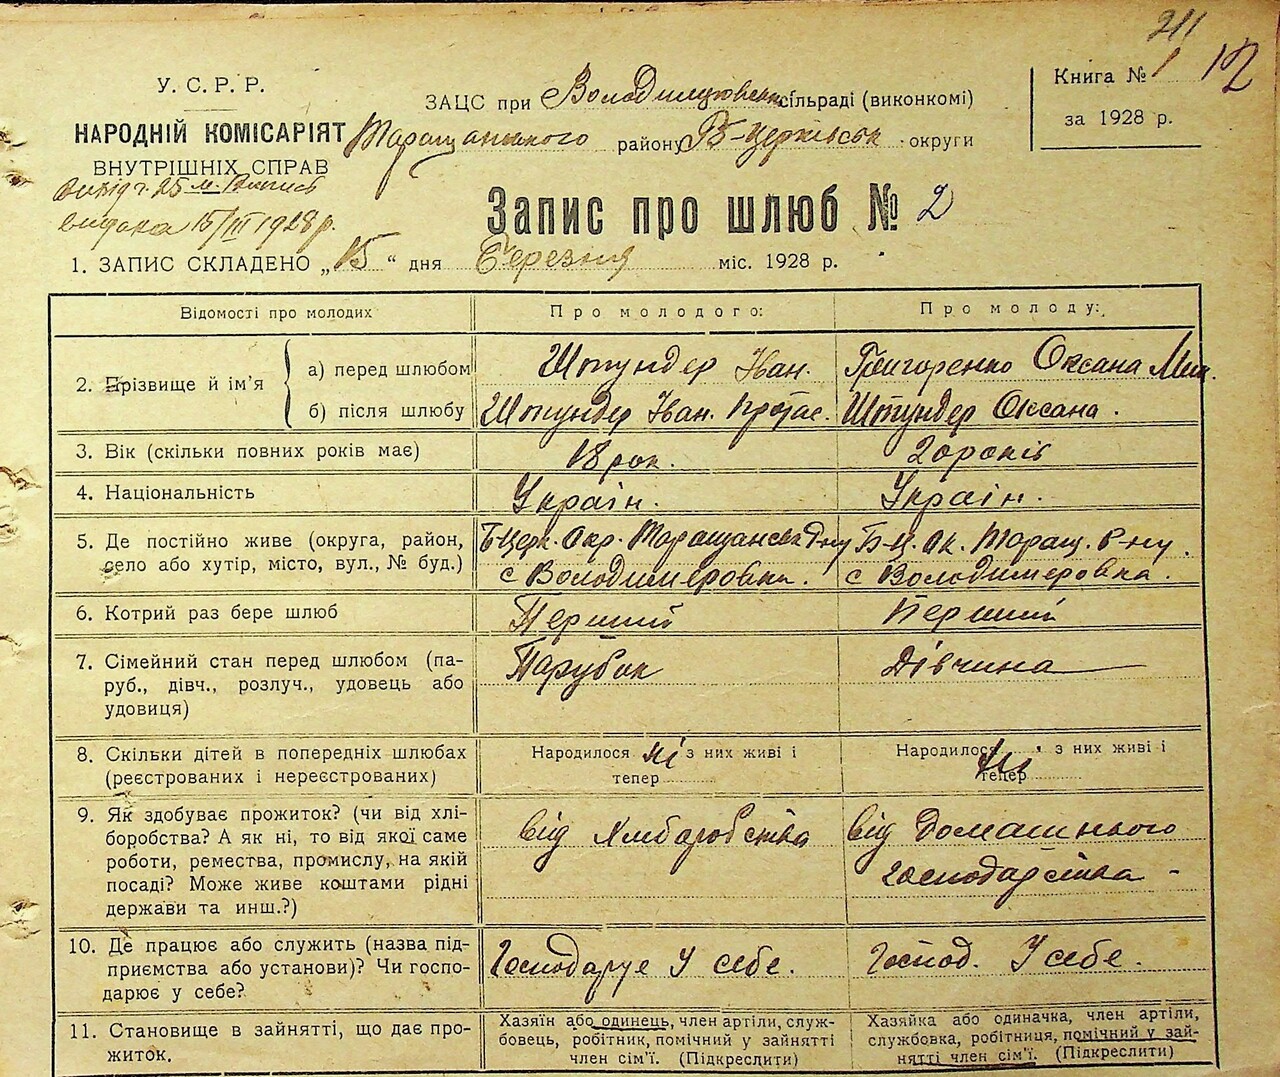 211
12
У. С. Р. Р.
НАРОДНІЙ КОМІСАРІЯТ
ВНУТРІШНІХ СПРАВ
ЗАЦС при сільраді (виконкомі)
Таращанського району Б-Церківськ округи
Книга № 1
за 1928 р.
видана 15/III 1928 р.
Запис про шлюб № 2
1. ЗАПИС СКЛАДЕНО „15" дня Березня міс. 1928 р.
Відомості про молодих
Про молодого:
Про молоду:
2. Прізвище й ім'я
а) перед шлюбом
Штундер Іван.
Григоренко Оксана Мик.
б) після шлюбу
Штундер Іван. Протас.
Штундер Оксана.
3. Вік (скільки повних років має)
18 рок.
20 років
4. Національність
Україн.
Україн.
5. Де постійно живе (округа, район,
село або хутір, місто, вул., № буд.)
Б-Церк. Окр. Таращанськ. р-ну
с Володимеровка.
Б-Ц. Ок. Таращ. Р-ну.
с Володимеровка.
6. Котрий раз бере шлюб
Перший
Перший
7. Сімейний стан перед шлюбом (па-
руб., дівч., розлуч., удовець або
удовиця)
Парубок
Дівчина
8. Скільки дітей в попередніх шлюбах
(реєстрованих і нереєстрованих)
Народилося ні з них живі і
тепер
Народилося ні з них живі і
тепер
9. Як здобуває прожиток? (чи від хлі-
боробства? А як ні, то від якої саме
роботи, ремества, промислу, на якій
посаді? Може живе коштами рідні
держави та инш.?)
від Хлібаробства
від Домашнього
господарства -
10. Де працює або служить (назва під-
приємства або установи)? Чи госпо-
дарює у себе?
Господарує У себе.
Господ. У себе.
11. Становище в зайнятті, що дає про-
житок.
Хазяїн або одинець, член артіли, служ-
бовець, робітник, помічний у зайнятті
член сім'ї. (Підкреслити)
Хазяйка або одиначка, член артіли,
службовка, робітниця, помічний у зай-
нятті член сім'ї. (Підкреслити)